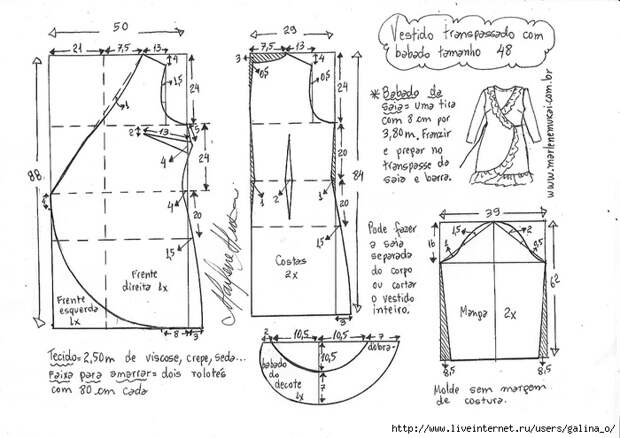 Vestido transpassado com
babado tamanho 48
50
21
7,5
13
4
1,5
24
1
2
13
1,5
4
24
88
4
20
4
1,5
Frente
direita 1x
Frente
esquerda
1x
8
3
29
3
7,5
13
4
0,5
0,5
24
20
84
1
2
1
20
1,5
Costas
2x
3
Marlene Mukai
* Babado da
saia = uma tira
com 8 cm por
3,80m. Franzir
e prepar no
transpasse da
saia e barra.
www.marlenemukai.com.br
Pode fazer
a saia
separada
do corpo
ou cortar
o vestido
inteiro.
39
16
1
1,5
2
0,5
62
Manga
2x
8,5
8,5
Molde sem margem
de costura.
2
10,5
10,5
7
dobra
10,5
7
babado
do
decote
1x
Tecido = 2,50m de viscose, crepe, seda...
Faixa para amarrar = dois rolotês
com 80 cm cada
http://www.liveinternet.ru/users/galina_o/